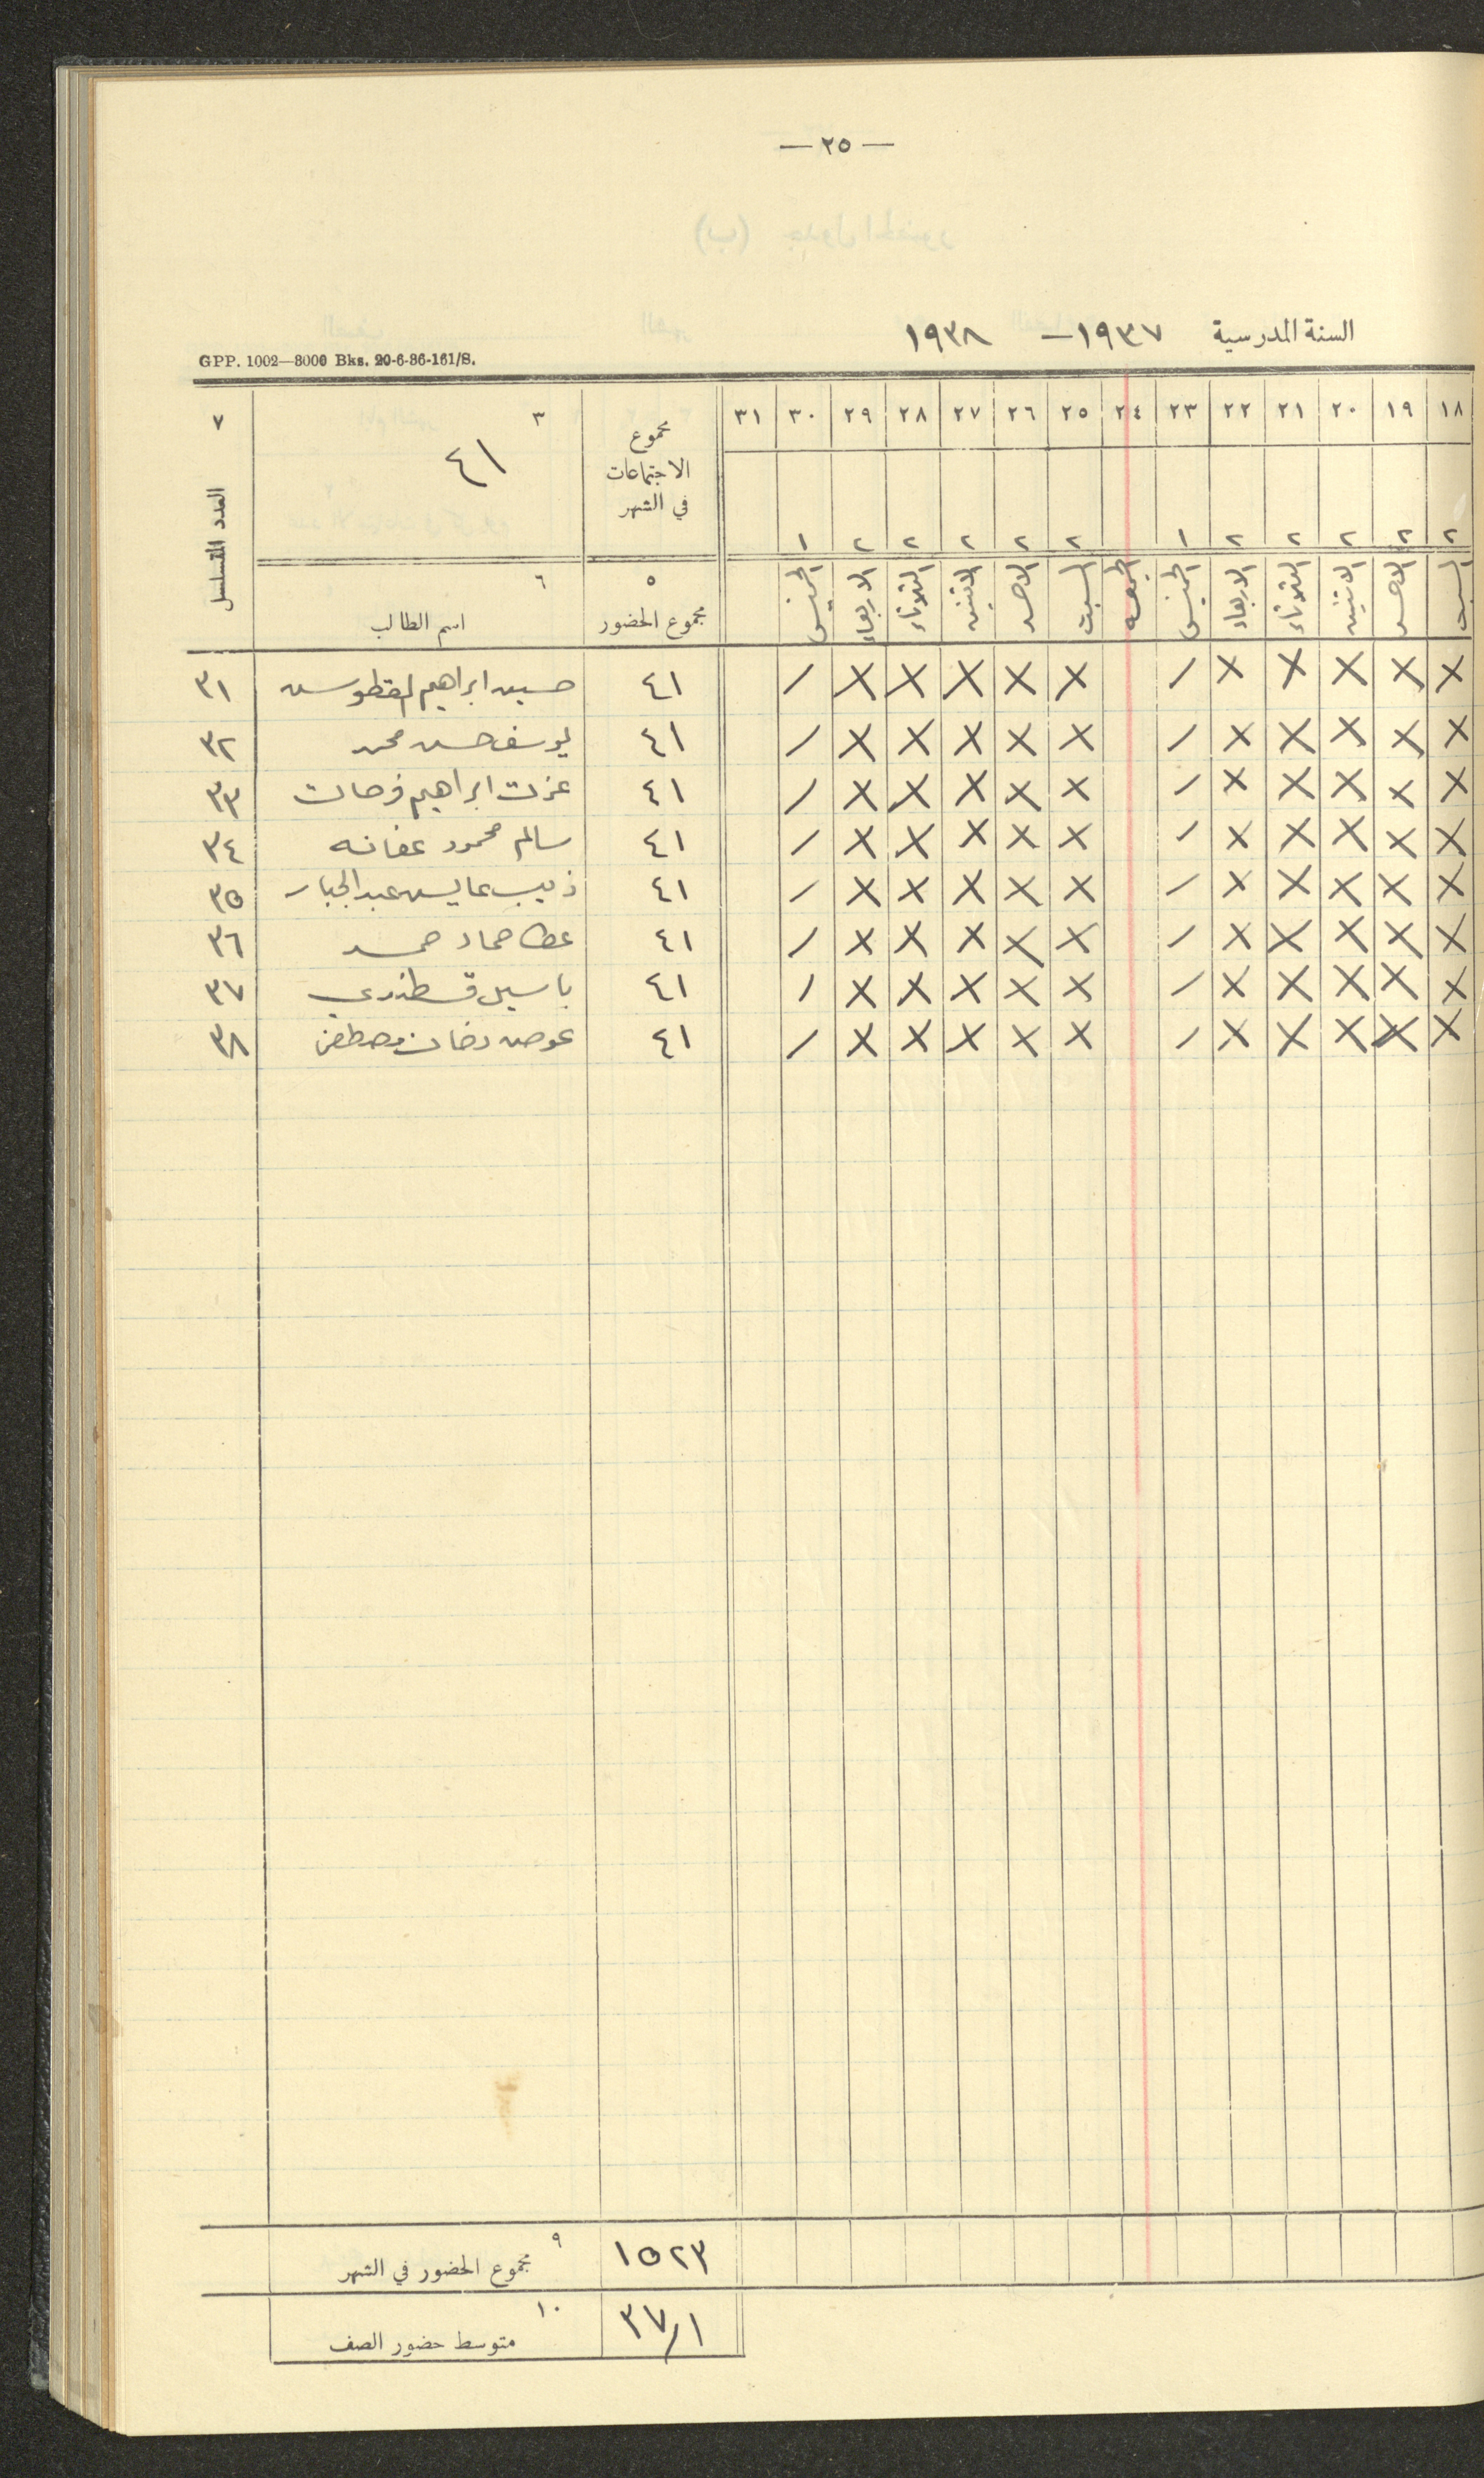 — ٢٥ —
السنة المدرسية ١٩٣٧ — ١٩٣٨
GPP. 1002—8000 Bks. 20-6-36-161/S.
١٨ ١٩ ٢٠ ٢١ ٢٢ ٢٣ ٢٤ ٢٥ ٢٦ ٢٧ ٢٨ ٢٩ ٣٠ ٣١ مجموع الاجتماعات في الشهر ٣ ٤١ ٧ العدد المتسلسل
٢ ٢ ٢ ٢ ٢ ١ ٢ ٢ ٢ ٢ ٢ ١
السبت الاحد الاثنين الثلاثاء الاربعاء الخميس الجمعه السبت الاحد الاثنين الثلاثاء الاربعاء الخميس ٥ مجموع الحضور ٦ اسم الطالب
X X X X X / X X X X X / ٤١ حسين ابراهيم ٣١
X X X X X / X X X X X / ٤١ يوسف حسن محمد ٣٢
X X X X X / X X X X X / ٤١ عزت ابراهيم فرحات ٣٣
X X X X X / X X X X X / ٤١ سالم محمود عفانه ٣٤
X X X X X / X X X X X / ٤١ ذيب عايس عبد الجبار ٣٥
X X X X X / X X X X X / ٤١ عطا حماد حمد ٣٦
X X X X X / X X X X X / ٤١ باسيل قسطندي ٣٧
X X X X X / X X X X X / ٤١ عوض رمضان مصطفى ٣٨
١٥٢٣ ٩ مجموع الحضور في الشهر
٣٧/١ ١٠ متوسط حضور الصف